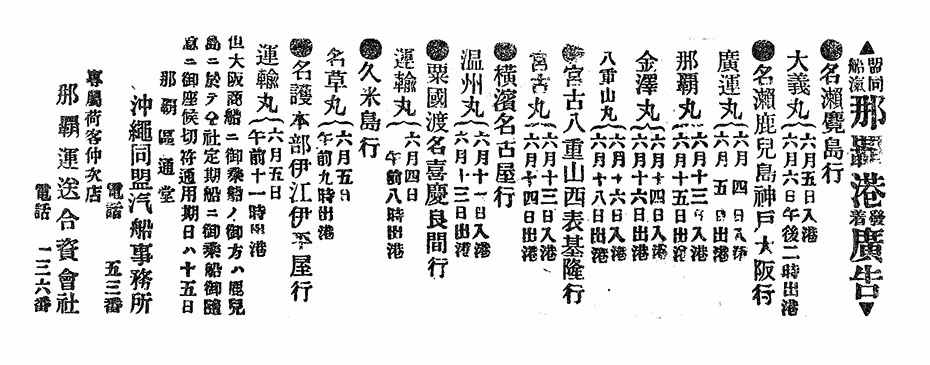 ▲同盟汽船那覇港發着廣告▼
●名瀨鹿島行
大義丸 六月五日入港
六月六日午後二時出港
●名瀨鹿兒島神戸大阪行
廣運丸 六月四日入港
六月五日出港
那覇丸 六月十三日入港
六月十五日出港
金澤丸 六月十四日入港
六月十六日出港
八重山丸 六月十六日入港
六月十八日出港
●宮古八重山西表基隆行
宮古丸 六月十三日入港
六月十四日出港
●横濱名古屋行
温州丸 六月十一日入港
六月十三日出港
●粟國渡名喜慶良間行
運輸丸 六月四日
午前八時出港
●久米島行
名草丸 六月五日
午前九時出港
●名護本部伊江伊平屋行
運輸丸 六月五日
午前十一時出港
但大阪商船ニ御乘船ノ御方ハ鹿兒
島ニ於テ仝社定期船ニ御乘船御隨
意ニ御座候切符通用期日ハ十五日
那覇區通堂
沖繩同盟汽船事務所
電話 五三番
專屬荷客仲次店
那覇運送合資會社
電話 一三六番